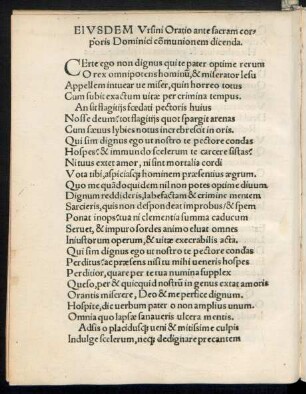 EIVSDEM Vrsini Oratio ante sacram cor,
poris Dominici cōmunionem dicenda.
CErte ego non dignus qui te pater optime rerum
O rex omnipotens hominū, & miserator Iesu
Appellem intuear ue miser, quin horreo totus
Cum subit exactum uitæ per crimina tempus.
An sit flagitijs fœdati pectoris huius
Nosse deum: tot flagitijs quot spargit arenas
Cum sæuus lybies notus increbrescit in oris.
Qui sim dignus ego ut nostro te pectore condas
Hospes: & immundo scelerum te carcere sistas:
Ni tuus extet amor, ni sint mortalia cordi
Vota tibi, aspiciasqꝫ hominem præsentius ægrum.
Quo me quādoquidem nil non potes optime diuum
Dignum reddideris, labefactam & crimine mentem
Sarcieris, quis non despondeat improbus, & spem
Ponat inops: tua ni clementia summa caducum
Seruet, & impuro sordes animo eluat omnes
Iniustorum operum, & uitæ execrabilis acta.
Qui sim dignus ego ut nostro te pectore condas
Perditus: ac præsens nisi tu mihi ueneris hospes
Perditior, quare per te tua numina supplex
Queso, per & quicquid nostrū in genus extat amoris
Orantis miserere, Deo & me perfice dignum.
Hospite, dic uerbum pater o non amplius unum.
Omnia quo lapsæ sanaueris ulcera mentis.
Adsis o placidusqꝫ ueni & mitissime culpis
Indulge scelerum, neqꝫ dedignare precantem